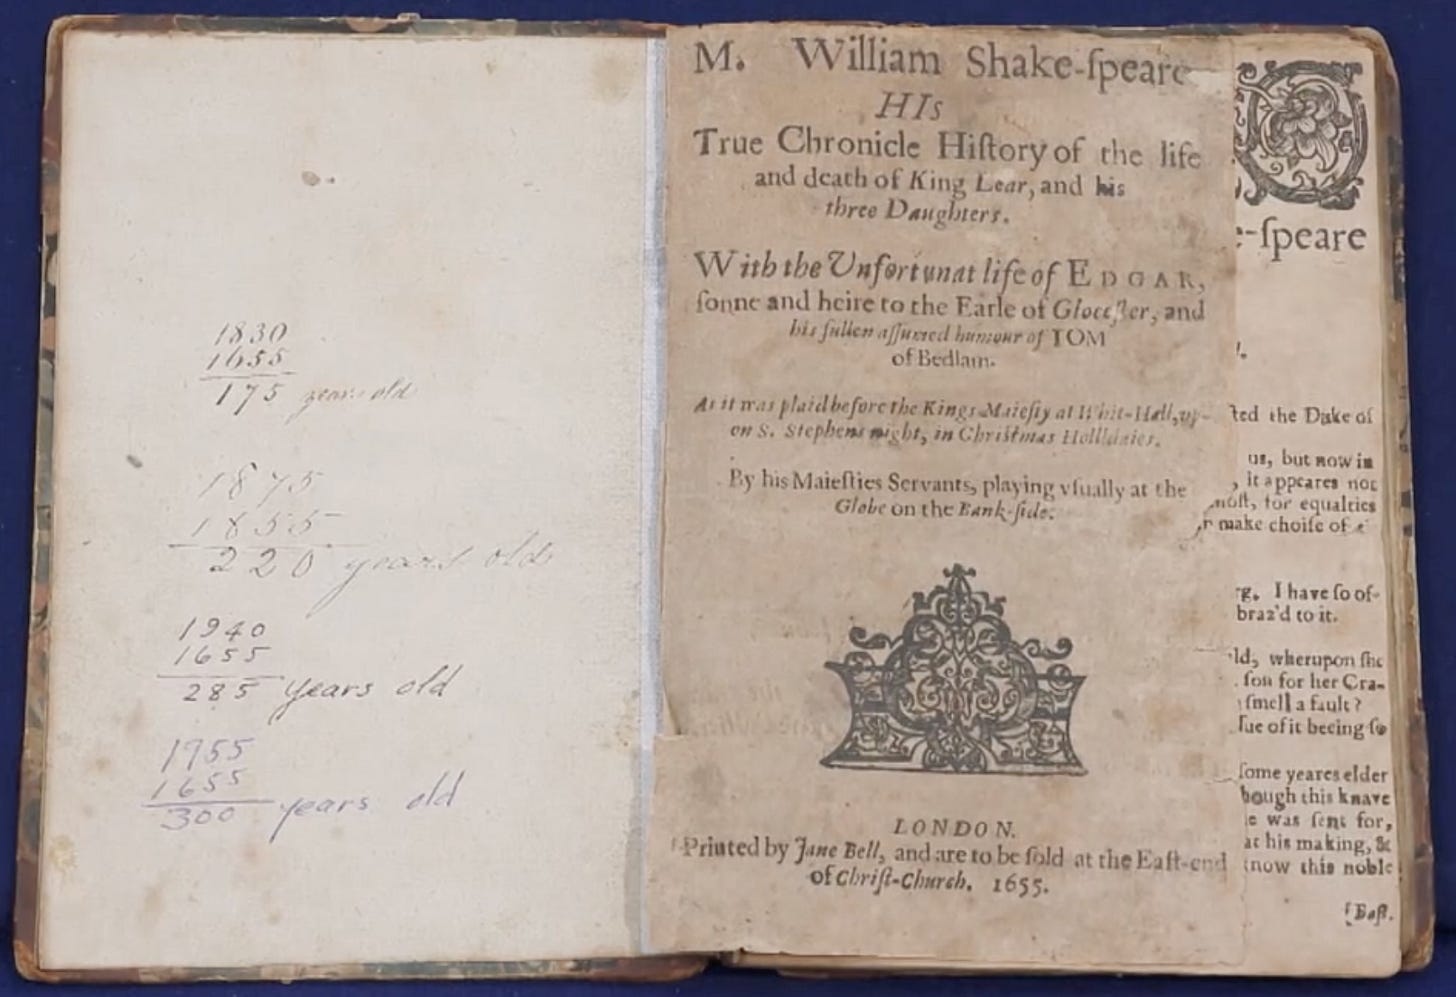 1830
1655
175 years old
1875
1855
220 years old
1940
1655
285 years old
1955
1655
300 years old
M. William Shake-ſpeare
HIS
True Chronicle Hiſtory of the life
and death of King Lear, and his
three Daughters.
With the Unfortunat life of EDGAR,
ſonne and heire to the Earle of Gloceſter, and
his ſullen aſſumed humour of TOM
of Bedlam.
As it was plaid before the Kings Maieſty at Whit-Hall, up-
on S. Stephens night, in Chriſtmas Hollidaies.
By his Maieſties Servants, playing vſually at the
Globe on the Bank-ſide.
LONDON.
Printed by Jane Bell, and are to be ſold at the Eaſt-end
of Chriſt-Church. 1655.
e-ſpeare
ted the Duke of
us, but now in
, it appeares not
moſt, for equalties
make choiſe of
rg. I have ſo of-
braz'd to it.
ld, wherupon ſhe
ſon for her Cra-
ſmell a fault?
ſue of it beeing ſo
ſome yeares elder
hough this knave
e was ſent for,
at his making, &
know this noble
Baſt.